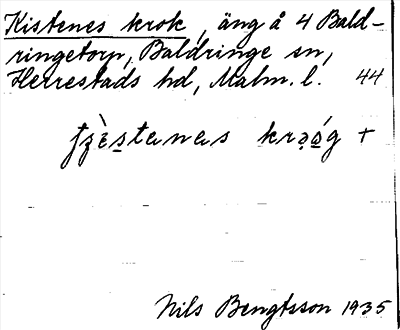 Kistenes krok, äng å 4 Bald-
ringetorp, Baldringe sn,
Herrestads hd, Malm. l. 44
krǫǫ́g +
Nils Bengtsson 1935